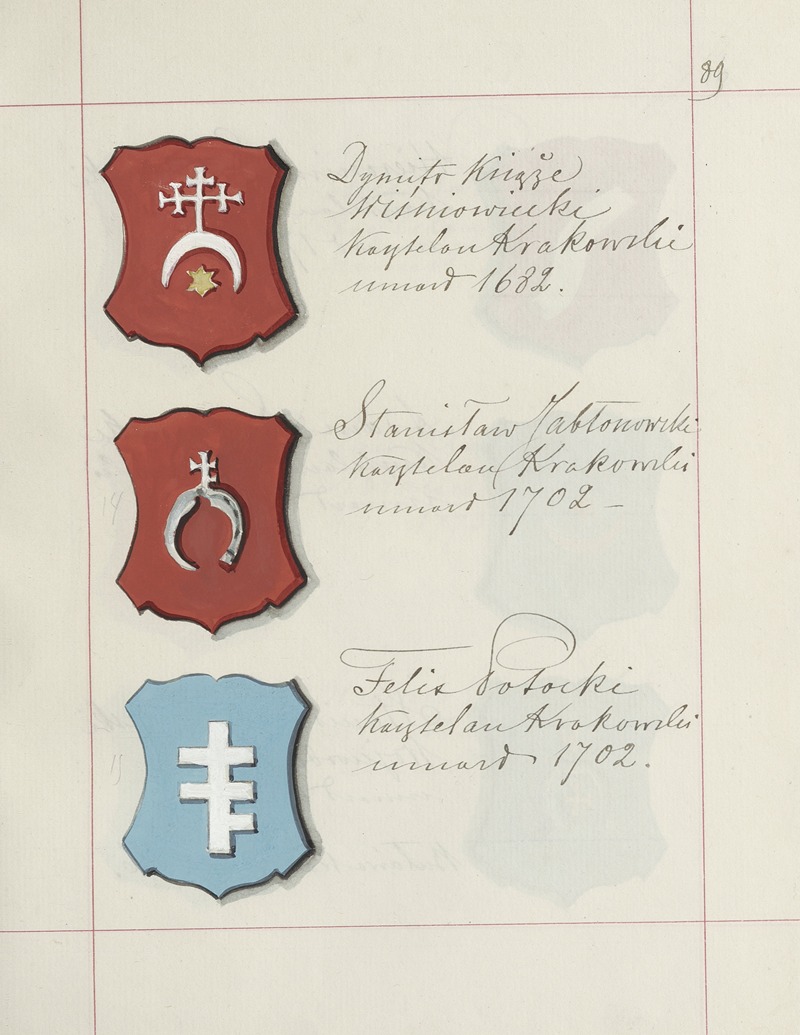 89
Dymitr Książe
Wiśniowiecki
Kasztelan Krakowski
umarł 1682.
Stanisław Jabłonowski
14
Kasztelan Krakowski
umarł 1702 –
Felix Potocki
Kasztelan Krakowski
15
umarł 1702.